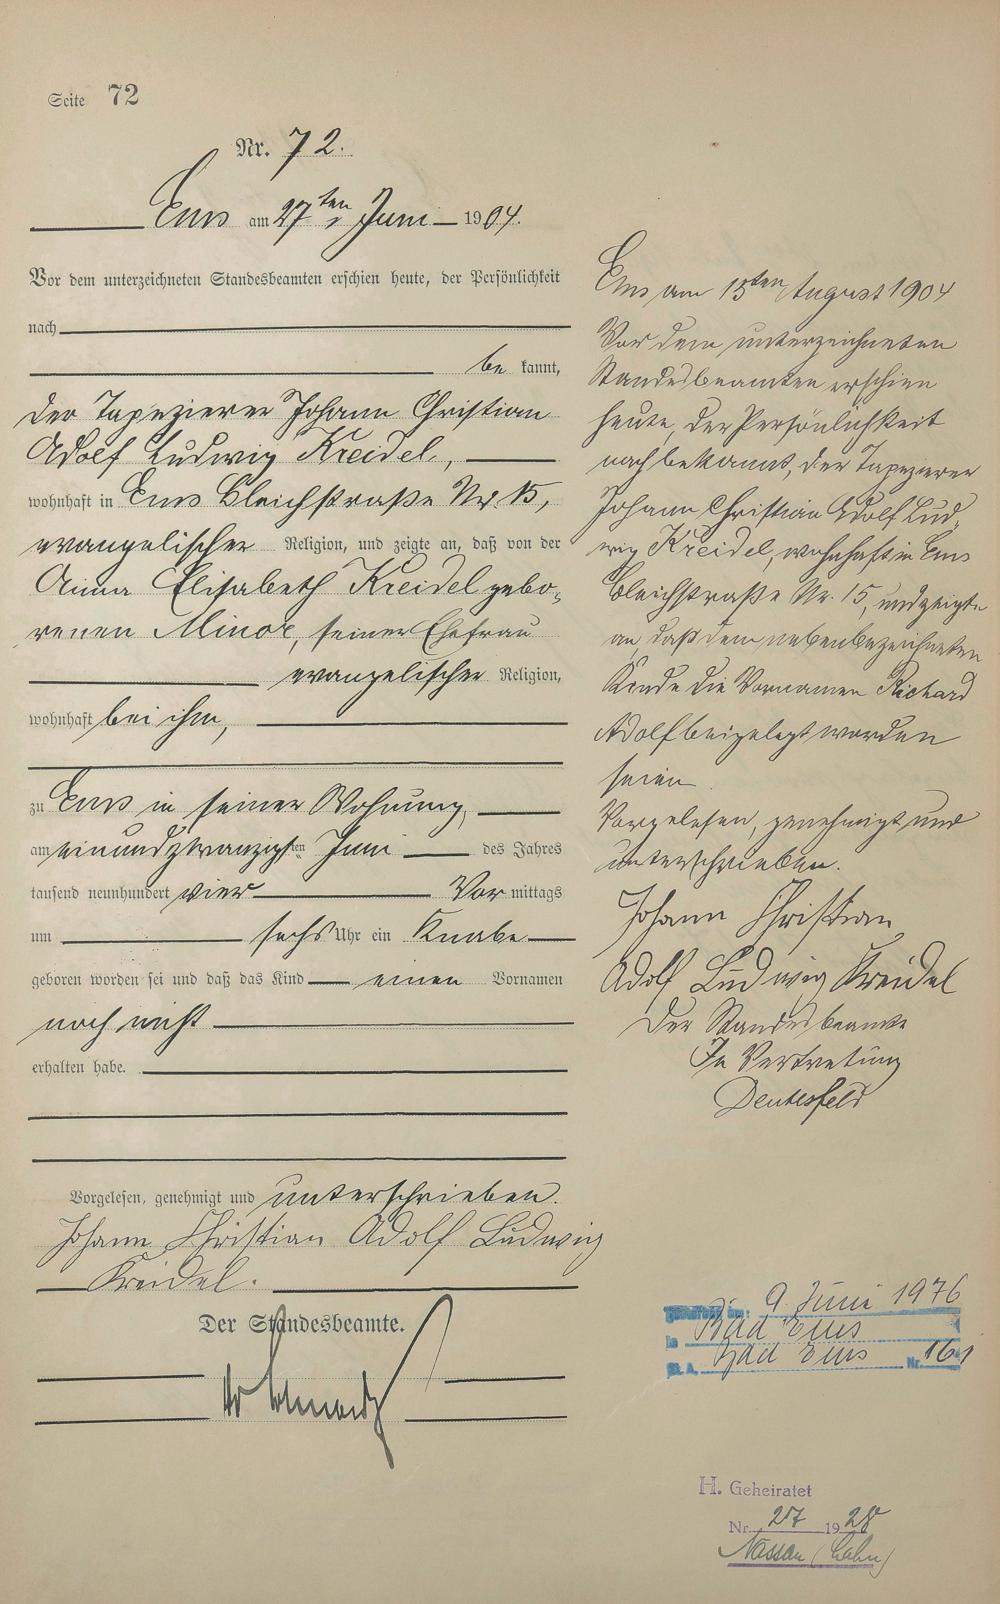 Seite 72
Nr. 72.
Ems am 27ten Juni 1904.
Vor dem unterzeichneten Standesbeamten erschien heute, der Persönlichkeit
nach
be kannt,
der Tapezierer Johann Christian
Adolf Ludwig Kreidel,
wohnhaft in Ems Bleichstraße Nr. 15,
evangelischer Religion, und zeigte an, daß von der
Anna Elisabeth Kreidel gebo-
renen Minor, seiner Ehefrau
evangelischer Religion,
wohnhaft bei ihm,
zu Ems in seiner Wohnung,
am einundzwanzigsten Juni des Jahres
tausend neunhundert vier Vor mittags
um sechs Uhr ein Knabe
geboren worden sei und daß das Kind einen Vornamen
noch nicht
erhalten habe.
Vorgelesen, genehmigt und unterschrieben.
Johann Christian Adolf Ludwig
Kreidel.
Der Standesbeamte.
Ems am 15ten August 1904
Vor dem unterzeichneten
Standesbeamten erschien
heute, der Persönlichkeit
nach bekannt, der Tapezierer
Johann Christian Adolf Lud-
wig Kreidel, wohnhaft in Ems
Bleichstraße Nr. 15, und zeigte
an, daß dem nebenbezeichneten
Kinde die Vornamen Richard
Adolf beigelegt worden
seien
Vorgelesen, genehmigt und
unterschrieben.
Johann Christian
Adolf Ludwig Kreidel
Der Standesbeamte
In Vertretung
9. Juni 1976
in Bad Ems
St. A. Bad Ems Nr. 161
H. Geheiratet
Nr. 27 1928
Nassau (Lahn)